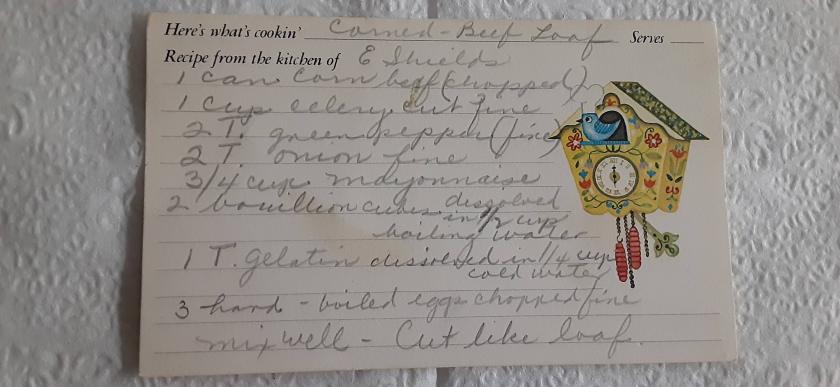 Here's what's cookin' Corned-Beef Loaf Serves
Recipe from the kitchen of E Shields
1 can corn beef (chopped)
1 cup celery cut fine
2 T. green pepper (fine)
2 T. onion fine
3/4 cup mayonnaise
2 bouillion cubes dissolved
in 1/2 cup
boiling water
1 T. gelatin dissolved in 1/4 cup
cold water
3 hard-boiled eggs chopped fine
mix well - Cut like loaf.